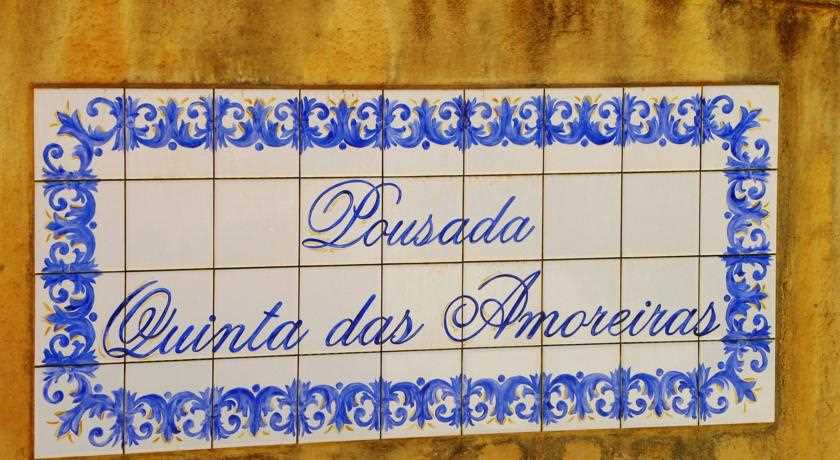 Pousada
Quinta das Amoreiras